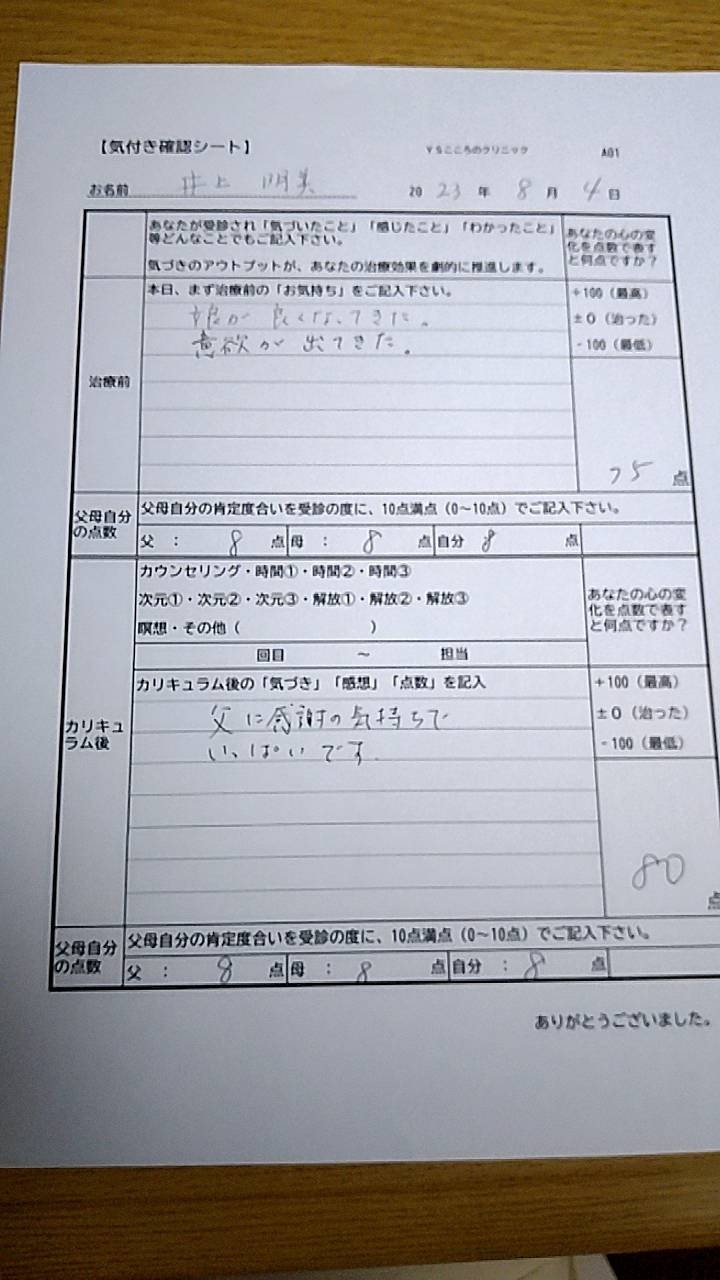 【気付き確認シート】 YSこころのクリニック A01
お名前 井上 明美 2023年8月4日
あなたが受診され「気づいたこと」「感じたこと」「わかったこと」
等どんなことでもご記入下さい。
気づきのアウトプットが、あなたの治療効果を劇的に推進します。
あなたの心の変
化を点数で表す
と何点ですか？
治療前
本日、まず治療前の「お気持ち」をご記入下さい。
娘が良くなってきた。
意欲が出てきた。
+100（最高）
±0（治った）
-100（最低）
75点
父母自分
の点数
父母自分の肯定度合いを受診の度に、10点満点（0～10点）でご記入下さい。
父：8点 母：8点 自分8点
カリキュ
ラム後
カウンセリング・時間①・時間②・時間③
次元①・次元②・次元③・解放①・解放②・解放③
瞑想・その他（ ）
回目 ～ 担当
あなたの心の変
化を点数で表す
と何点ですか？
カリキュラム後の「気づき」「感想」「点数」を記入
父に感謝の気持ちで
いっぱいです
+100（最高）
±0（治った）
-100（最低）
80点
父母自分
の点数
父母自分の肯定度合いを受診の度に、10点満点（0～10点）でご記入下さい。
父：8点 母：8点 自分：8点
ありがとうございました。